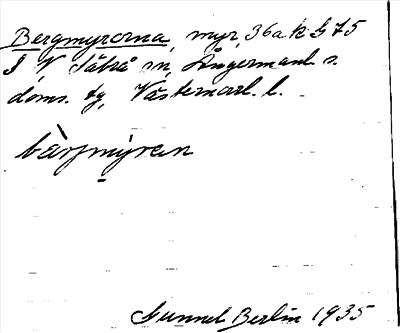 Bergmyrorna, myr, 36a k G 75
I V Säbrå sn, Ångermanl. s.
doms. tg, Västernorrl. l.
bärjmýran
Gunnel Berlin 1935